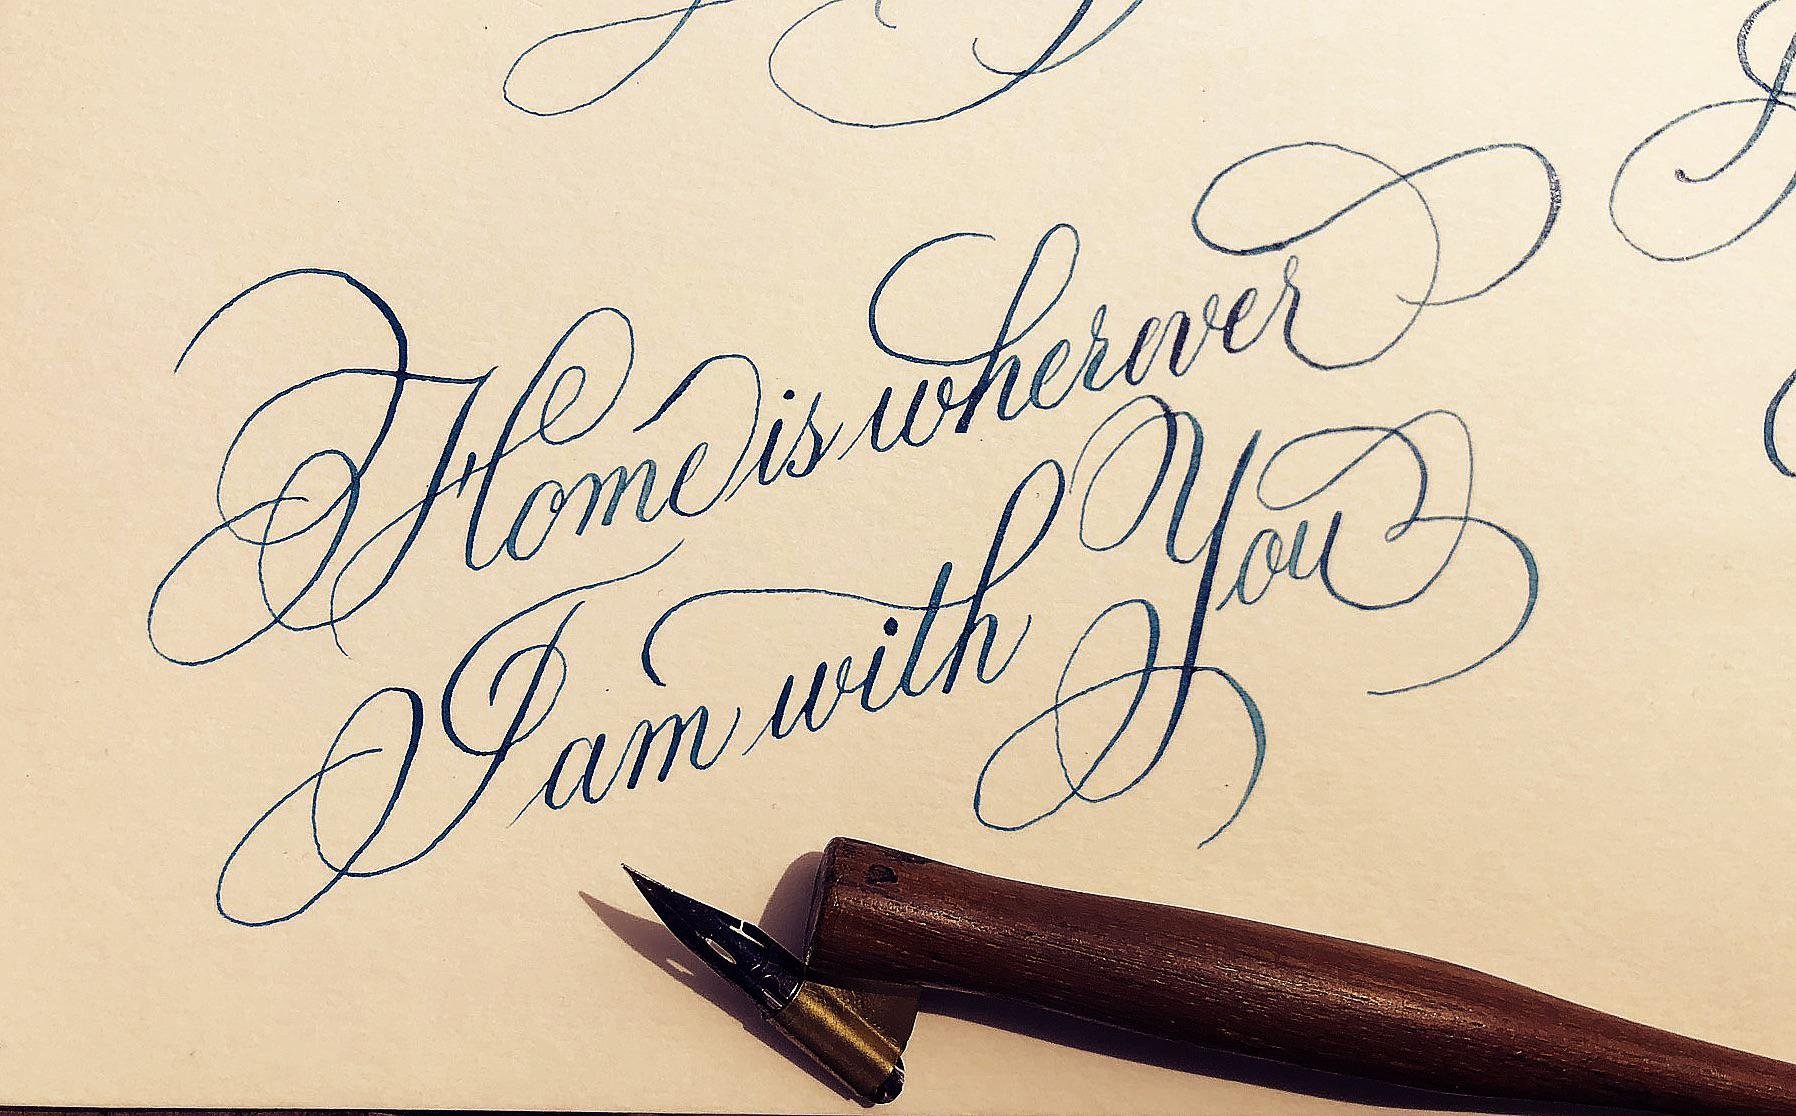 Home is wherever
I am with You